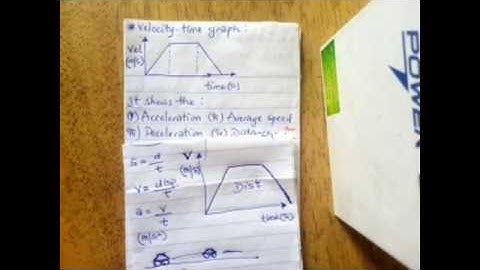 * Velocity-time graph:
Vel
(m/s)
time(s)
It shows the:
(i) Acceleration (iii) Average speed
(ii) Deceleration (iv) Distance
S = d/t
V = disp/t
a = v/t
(m/s²)
V
(m/s)
Dist
time(s)
POWER